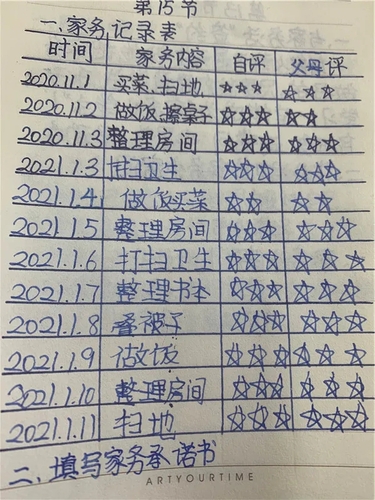 第15节
一、家务记录表
时间 家务内容 自评 父母评
2020.11.1 买菜、扫地 ☆☆☆ ☆☆☆
2020.11.2 做饭、擦桌子 ☆☆☆ ☆☆
2020.11.3 整理房间 ☆☆☆ ☆☆☆
2021.1.3 打扫卫生 ☆☆☆ ☆☆☆
2021.1.4 做饭买菜 ☆☆ ☆☆
2021.1.5 整理房间 ☆☆☆ ☆☆☆
2021.1.6 打扫卫生 ☆☆☆ ☆☆☆
2021.1.7 整理书本 ☆☆☆ ☆☆☆
2021.1.8 叠被子 ☆☆☆ ☆☆☆
2021.1.9 做饭 ☆☆☆ ☆☆☆
2021.1.10 整理房间 ☆☆☆ ☆☆☆
2021.1.11 扫地 ☆☆☆ ☆☆☆
二、填写家务承诺书
ARTYOURTIME